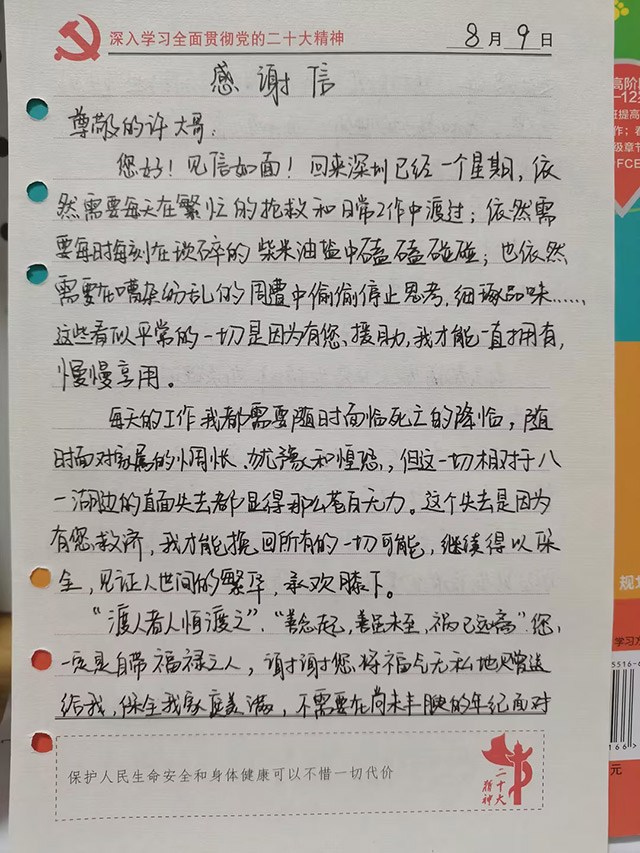 深入学习全面贯彻党的二十大精神
8月9日
感谢信
尊敬的许大哥：
您好！见信如面！回来深圳已经一个星期，依
然需要每天在繁忙的抢救和日常工作中渡过；依然需
要每时每刻在琐碎的柴米油盐中磕磕碰碰；也依然
需要在嘈杂纷乱的周遭中偷偷停止思考，细琢品味……
这些看似平常的一切是因为有您、援助，我才能一直拥有，
慢慢享用。
每天的工作我都需要随时面临死亡的降临，随
时面对家属的惆怅、犹豫和惶恐，但这一切相对于八
一湖边的直面失去都显得那么苍白无力。这个失去是因为
有您救济，我才能挽回所有的一切可能，继续得以保
全，见证人世间的繁华，承欢膝下。
“渡人者人恒渡之”、“善念起，善虽未至，祸已远离”您，
一定是自带福禄之人，谢谢您将福气无私地赠送
给我，保全我家庭美满，不需要在尚未丰腴的年纪面对
保护人民生命安全和身体健康可以不惜一切代价
二十大
精神
高阶
规
学习方
5516-6
166
元
FCE